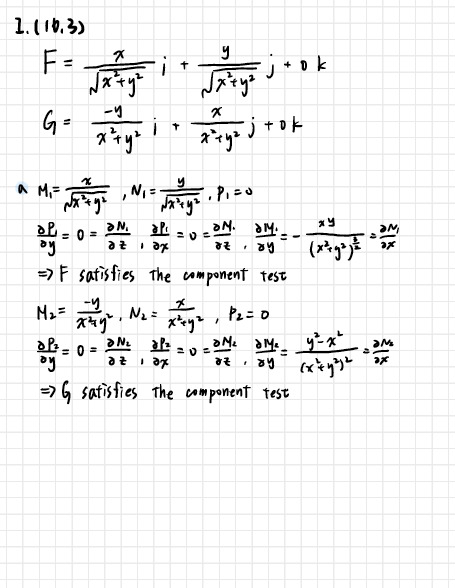 I. (16.3)
F = x/√(x²+y²) i + y/√(x²+y²) j + 0 k
G = -y/(x²+y²) i + x/(x²+y²) j + 0 k
a M₁ = x/√(x²+y²) , N₁ = y/√(x²+y²) , P₁ = 0
∂P₁/∂y = 0 = ∂N₁/∂z , ∂P₁/∂x = 0 = ∂M₁/∂z , ∂M₁/∂y = - xy/(x²+y²)^(3/2) = ∂N₁/∂x
=> F satisfies the component test
M₂ = -y/(x²+y²) , N₂ = x/(x²+y²) , P₂ = 0
∂P₂/∂y = 0 = ∂N₂/∂z , ∂P₂/∂x = 0 = ∂M₂/∂z , ∂M₂/∂y = (y²-x²)/(x²+y²)² = ∂N₂/∂x
=> G satisfies the component test